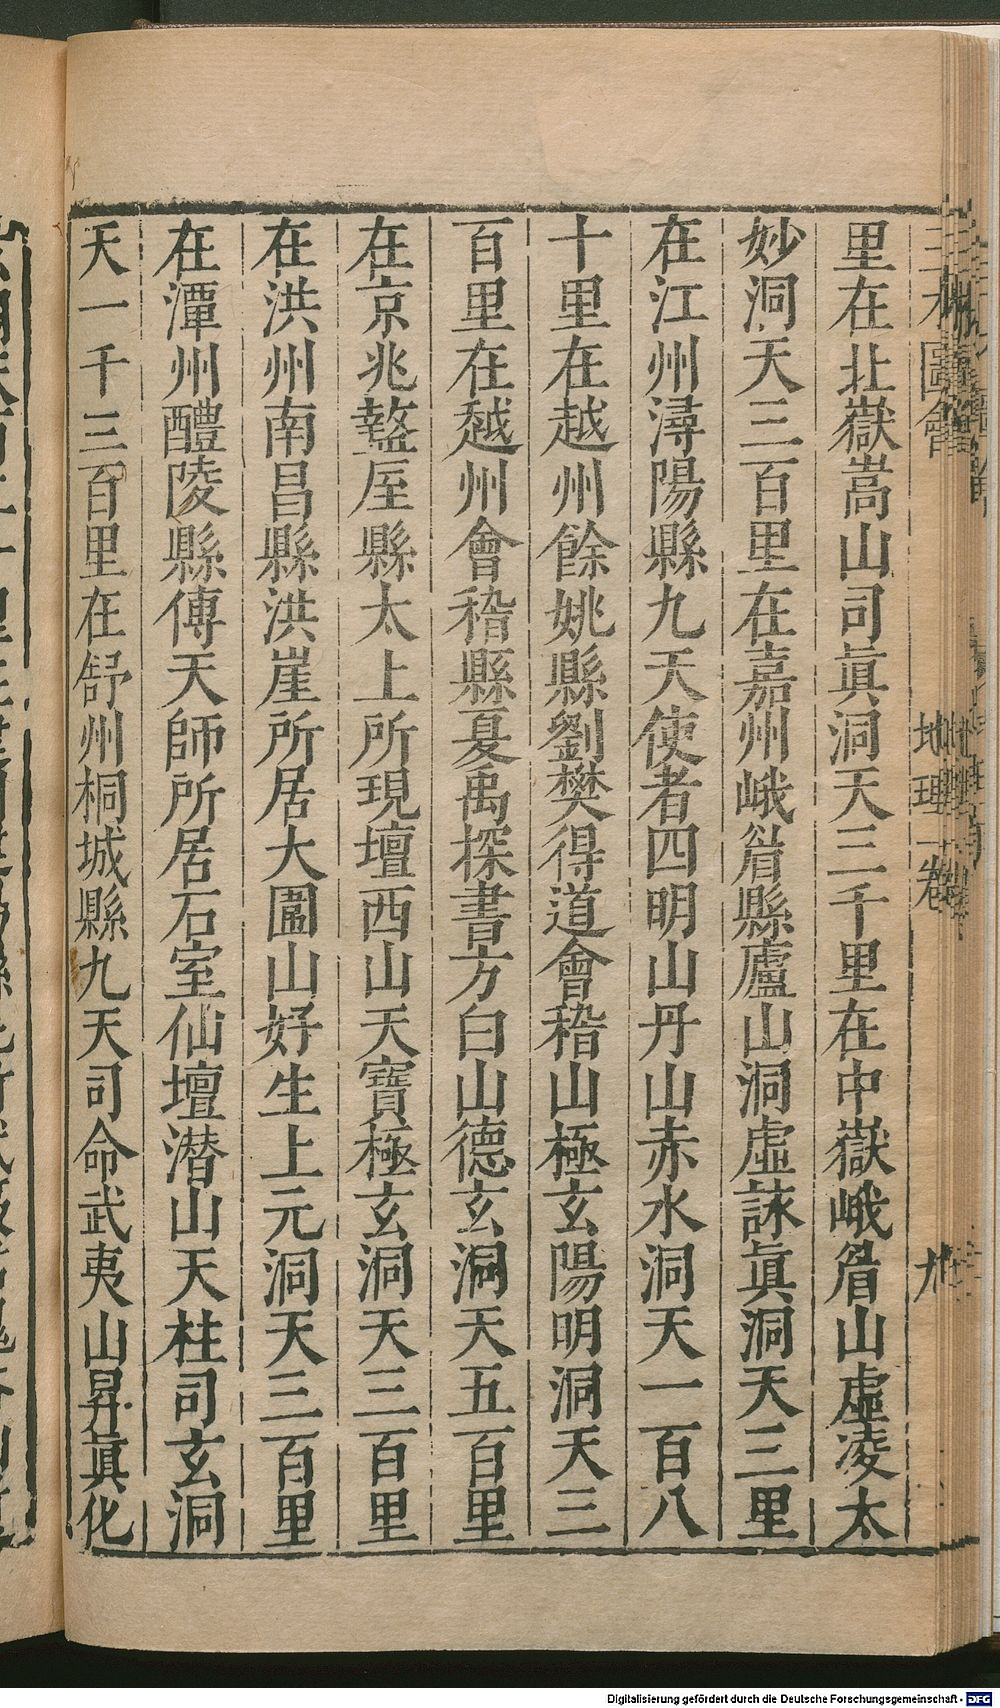 三才圖會 地理一卷 九
里在北嶽嵩山司眞洞天三千里在中嶽峨眉山虛凌太
妙洞天三百里在嘉州峨眉縣廬山洞虛詠眞洞天三里
在江州潯陽縣九天使者四明山丹山赤水洞天一百八
十里在越州餘姚縣劉樊得道會稽山極玄陽明洞天三
百里在越州會稽縣夏禹探書方白山德玄洞天五百里
在京兆盩厔縣太上所現壇西山天寶極玄洞天三百里
在洪州南昌縣洪崖所居大圍山好生上元洞天三百里
在潭州醴陵縣傅天師所居石室仙壇潛山天柱司玄洞
天一千三百里在舒州桐城縣九天司命武夷山昇眞化
Digitalisierung gefördert durch die Deutsche Forschungsgemeinschaft - DFG